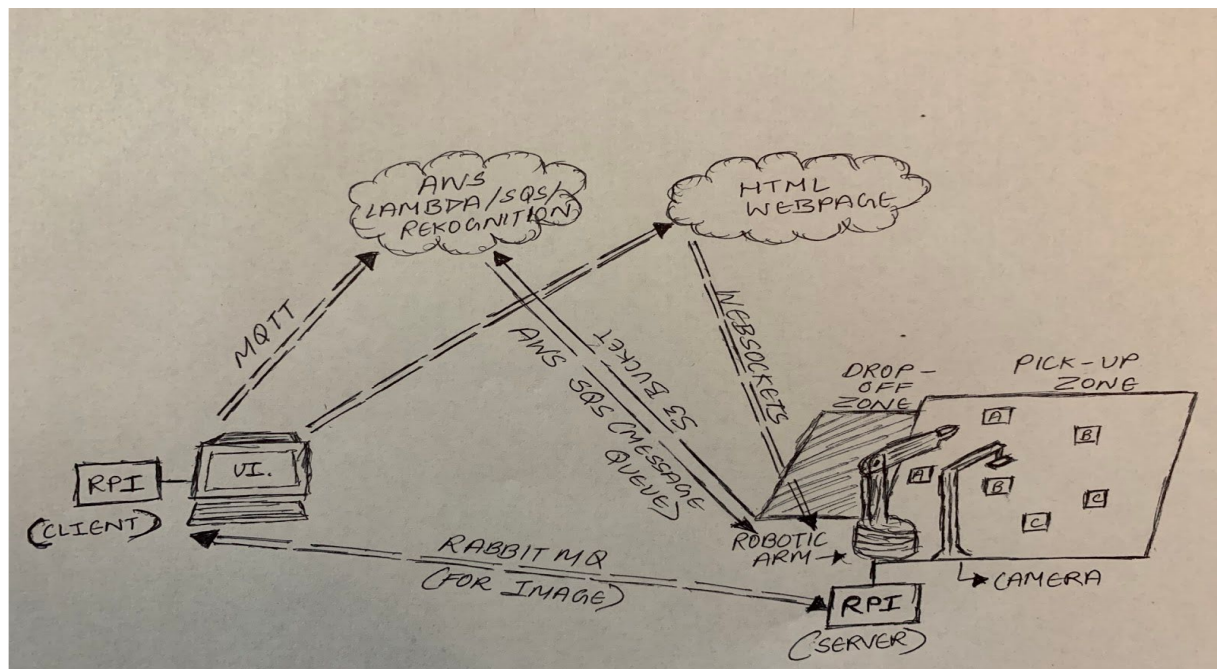 AWS
LAMBDA/SQS/
REKOGNITION
HTML
WEBPAGE
MQTT
S3 BUCKET
AWS SQS (MESSAGE
QUEUE)
WEBSOCKETS
DROP-
OFF
ZONE
PICK-UP
ZONE
A
B
A
B
C
C
UI.
RPI
(CLIENT)
RABBIT MQ
(FOR IMAGE)
ROBOTIC
ARM
CAMERA
RPI
(SERVER)